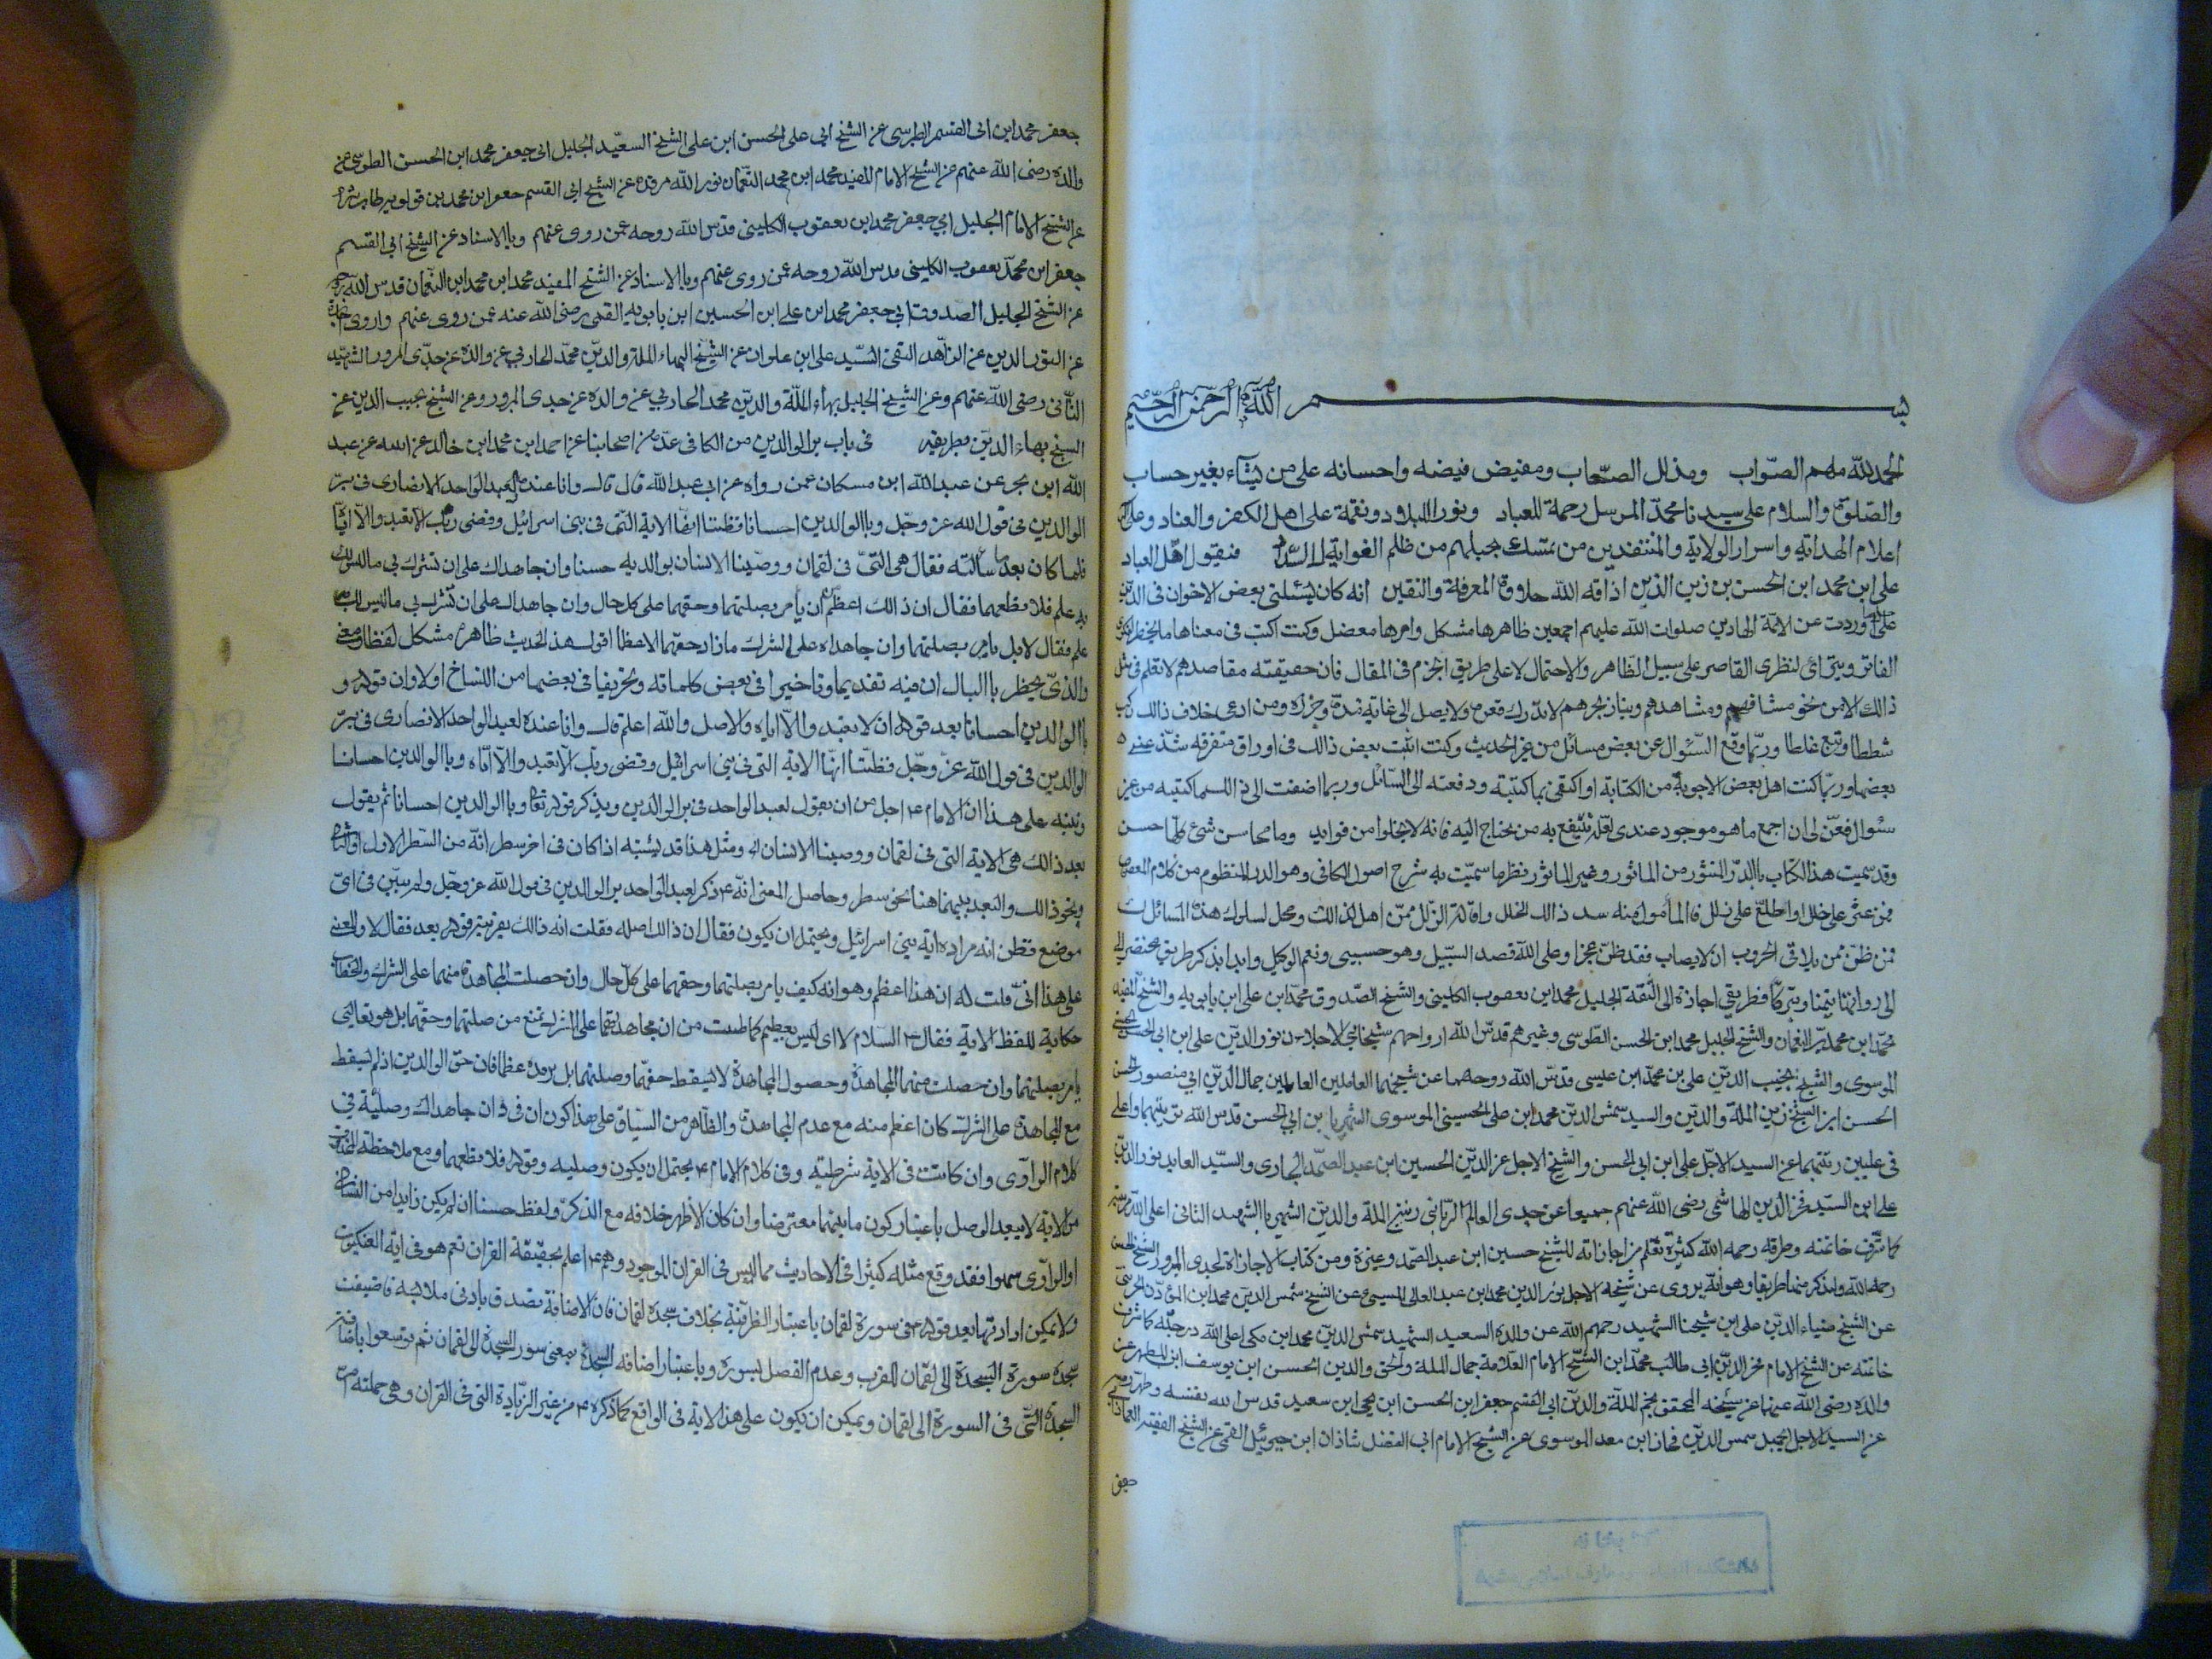 بسم الله الرحمن الرحيم
الحمد لله ملهم الصّواب ومذلل الصّعاب ومفيض فيضه واحسانه على من يشآء بغير حساب
والصّلوة والسلام على سيدنا محمّد المرسل رحمة للعباد ونور البلاد ونقمة على اهل الكفر والعناد وعلى اله
اعلام الهداية واسرار الولاية والمنقذين من تمسك بحبلهم من ظلم الغواية فيقول اقل العباد
على ابن محمد ابن الحسن بن زين الدّين اذاقه الله حلاوة المعرفة واليقين انه كان يسئلنى بعض الاخوان فى الدّين
وردت عن الائمة الهادين صلوات الله عليهم اجمعين ظاهرها مشكل وامرها معضل وكنت اكتب فى معناها ما يخطر
الفاتر ويترائ لنظرى القاصر على سبيل الظّاهر والاحتمال لا على طريق الجزم فى المقال فان حقيقته مقاصدهم لا تعلم فى مثل
ذالك الا من نحو مشافهتهم ومشاهدهم وتيار بحرهم لا يدرك قعره ولا يصل الى غايته ومن ادعى خلاف ذالك ركب
شططا ورتع غلطا وربّما وقع السّئوال عن بعض مسائل من غير الحديث وكنت اثبت بعض ذالك فى اوراق متفرقة شذّ عنى
بعضها وربّما كنت اهل بعض الاجوبة من الكتابة او اكتفى بما كتبته ودفعته الى السّائل وربما اضفت الى ذالك ما كتبته من غير
سئوال فعنّ لى ان اجمع ما هو موجود عندى لعلّه ينتفع به من يحتاج اليه فانه لا يخلوا من فوايد وما محاسن شئ كلّها حسن
وقد سميت هذا الكتاب باالدّر المنثور من الماثور وغير الماثور نظر ما سميّت به شرح اصول الكافى وهو الدر المنظوم من كلام المعصوم
فمن عثر على خلل او اطلع على زلل فالمأمول منه سد ذالك الخلل واقالة الزّلل ممّن اهل لذالك ومحل لسلوك هذه المسالك
فمن ظنّ ممن يلاقى الحروب ان لا يصاب فقد ظنّ عجزا وعلى الله قصد السّبيل وهو حسبى ونعم الوكيل وابدا بذكر طريق مختصر
الى روايتها تيمّنا وتبرّكا فطريقى اجازة الى الثّقة الجليل محمد ابن يعقوب الكلينى والشيخ الصّدوق محمّد ابن على ابن بابويه والشيخ المفيد
محمّد ابن محمد بن النعمان والشيخ الجليل محمد ابن الحسن الطّوسى وغيرهم قدّس الله ارواحهم شيخاىّ الاجلان نور الدّين على ابن ابى الحسن الحسينى
الموسوى والشيخ نجيب الدّين على بن محمّد ابن عيسى قدّس الله روحهما عن شيخيهما العاملين العالمين جمال الدّين ابى منصور الحسن
الحسن ابن الشيخ زين الملة والدّين والسيد شمس الدّين محمد ابن على الحسينى الموسوى الشّهير بابن ابى الحسن قدس الله تربتهما واعلى
فى عليين رتبتهما عن السيد الاجلّ على ابن ابى الحسن والشيخ الاجل عز الدّين الحسين ابن عبد الصمّد الحارثى والسيّد العابد نور الدّين
على ابن السيّد فخر الدّين الهاشمى رضى الله عنهم جميعا عن جدى العالم الرّبانى زين الملة والدّين الشهير باالشهيد الثانى اعلى الله رتبته
كما شرّف خاتمته وطرقه رحمه الله كثيرة تعلم من اجازاته للشيخ حسين ابن عبد الصّمد وغيره ومن كتاب الاجازاة لجدى المبرور الشيخ حسن
رحمه الله ولنذكر منها طريقا وهو انّه يروى عن شيخه الاجل نور الدين محمد ابن عبد العالى الميسى عن الشيخ شمس الدين محمد ابن المؤذّن الجزينى
عن الشيخ ضياء الدّين على ابن شيخنا الشّهيد رحمهم الله عن والده السعيد الشّهيد شمس الدّين محمد ابن مكى اعلى الله درجته كما شرف
خاتمته عن الشيخ الامام فخر الدّين ابى طالب محمّد ابن الشّيخ الامام العلّامة جمال الملة والحق والدين الحسن ابن يوسف ابن المطهر عن
والده رضى الله عنهما عن شيخه المحقق نجم الملة والدّين ابى القسم جعفر ابن الحسن ابن يحيى ابن سعيد قدس الله نفسه
عن السيد الاجل شمس الدّين فخار ابن معد الموسوى عن الشيخ الامام ابى الفضل شاذان ابن جبرئيل القمى عن الشيخ الفقيه العماد
جعفر
جعفر محمد ابن ابى القسم الطبرسى عن الشيخ ابى على الحسن ابن على الشيخ السعيد الجليل ابى جعفر محمد ابن الحسن الطوسى عن
والده رضى الله عنهم عن الشيخ الامام المفيد محمد ابن محمد النّعمان نور الله مرقده عن الشيخ ابى القسم جعفر ابن محمد بن قولويه طاب ثراه
عن الشيخ الامام الجليل ابى جعفر محمد ابن يعقوب الكلينى قدس الله روحه عمن روى عنهم وباالاسناد عن الشيخ ابى القسم
جعفر ابن محمّد يعقوب الكلينى قدس الله روحه عمن روى عنهم وباالاسناد عن الشيخ المفيد محمد ابن محمد ابن النّعمان قدس الله روحه
عن الشيخ الجليل الصّدوق ابى جعفر محمد ابن على ابن الحسين ابن بابويه القمى رضى الله عنه عمن روى عنهم واروى
عن النور الدين عن الزاهد التقى السّيد على ابن علوان عن الشيخ البهاء الملة والديّن محمّد الحارثى عن والده عن جدّى المبرور الشهيد
الثّانى رضى الله عنهم وعن الشيخ الجليل بهاء الملّة والديّن محمد الحارثى عن والده عن جدى المبرور وعن الشيخ نجيب الدين عن
الشيخ بهاء الديّن بطريقه فى باب بر الوالدين من الكافى عدّة من اصحابنا عن احمد ابن محمد ابن خالد عن ابيه عن عبد
الله ابن بحر عن عبد الله ابن مسكان عمن رواه عن ابى عبد الله قال قال وانا عنده لعبد الواحد الانصارى فى برّ
الوالدين فى قول الله عز وجّل وباالوالدين احسانا فظنّنا انها الاية التّى فى بنى اسرائيل وقضى ربك الا تعبدوا الا ايّاه
فلما كان بعد سألته فقال هى التّى فى لقمان ووصّينا الانسان بوالديه حسنا وان جاهداك على ان تشرك بى ما ليس لك
به علم فلا تطعهما فقال ان ذالك اعظم ان يأمر بصلتهما وحقهما على كل حال وان جاهداك على ان تشرك بى ما ليس لك به
علم فقال لا بل يأمر بصلتهما وان جاهداه على الشرك ما زاد حقهما الا عظما اقول هذا الحديث ظاهره مشكل لفظا ومعنى
والذّى يخطر باالبال ان فيه تقديما وتاخيرا فى بعض كلماته وتحريفا فى بعضها من النساخ اولا وان قوله و
باالوالدين احسانا بعد قوله ان لا تعبدوا الّا اياه والاصل والله اعلم قال وانا عنده لعبد الواحد الانصارى فى برّ
الوالدين فى قول الله عزّ وجّل فظنّنا انهّا الاية التى فى بنى اسرائيل وقضى ربك الّا تعبدوا الّا ايّاه وباالوالدين احسانا
وينبه على هذا انّ الامام ع اجل من ان يقول لعبد الواحد فى بر الوالدين ويذكر قوله تعا وباالوالدين احسانا ثم يقول
بعد ذالك هى الاية التى فى لقمان ووصينا الانسان ومثل هذا قد يشتبه اذا كان فى اخر سطر انّه من السّطر الاول
ونحو ذالك والبعد بينهما هنا نحو سطر وحاصل المعنى انّه ع ذكر لعبد الواحد بر الوالدين فى قول الله عز وجّل ولم يبّين فى اىّ
موضع فظن انه مراده اية بنى اسرائيل ويحتمل ان يكون فقال ان ذالك اصله فقلت انه ذالك بقرينة قوله بعد فقال لا والمعنى
على هذا انىّ قلت له ان هذا اعظم وهو انه كيف يامر بصلتهما وحقهما على كلّ حال وان حصلت المجاهدة منهما على الشرك والخطاب
حكاية للفظ الاية فقال ع السّلام لا اى ليس بعظيم كما ظننت من ان مجاهدتهما على الشرك تمنع من صلتهما وحقّهما بل هو تعالى
يامر بصلتهما وان حصلت منهما المجاهدة وحصول المجاهدة لا يسقط حقهّما وصلتهما بل يزيده عظما فان حق الوالدين اذا لم يسقط
مع المجاهدة على الشرك كان اعظم منه مع عدم المجاهدة والظاهر من السيّاق على هذا كون ان فى وان جاهداك وصليّة فى
كلام الراوى وان كانت فى الاية شرطيّة وفى كلام الامام ع يحتمل ان يكون وصليه وقوله فلا تطعهما ومع ملاحظة
من الاية لا يبعد الوصل باعتبار كون ما بينهما معترضا وان كان الاظهر خلافه مع الذكر ولفظ حسنا ان لم يكن زايدا من النساخ
او الراوى سهوا فقد وقع مثله كثيرا فى الاحاديث مما ليس فى القران الموجود وهم ع اعلم بحقيقة القران نعم هو فى اية العنكبوت
ولا يمكن ارادتها بعد قوله فى سورة لقمان باعتبار الظرفيّة بخلاف سجدة لقمان فان الاضافة تصدق بادنى ملابسة فاضيفت
سجدة سورة السّجدة الى لقمان للقرب وعدم الفصل بسورة وباعتبار اضافة السجدة بمعنى سورة السجدة الى لقمان ثم توسعوا باضافة
السجدة التّى فى السورة الى لقمان ويمكن ان يكون على هذا الاية فى الواقع كما ذكره ع من غير الزّيادة التى فى القران وهى حملته امه